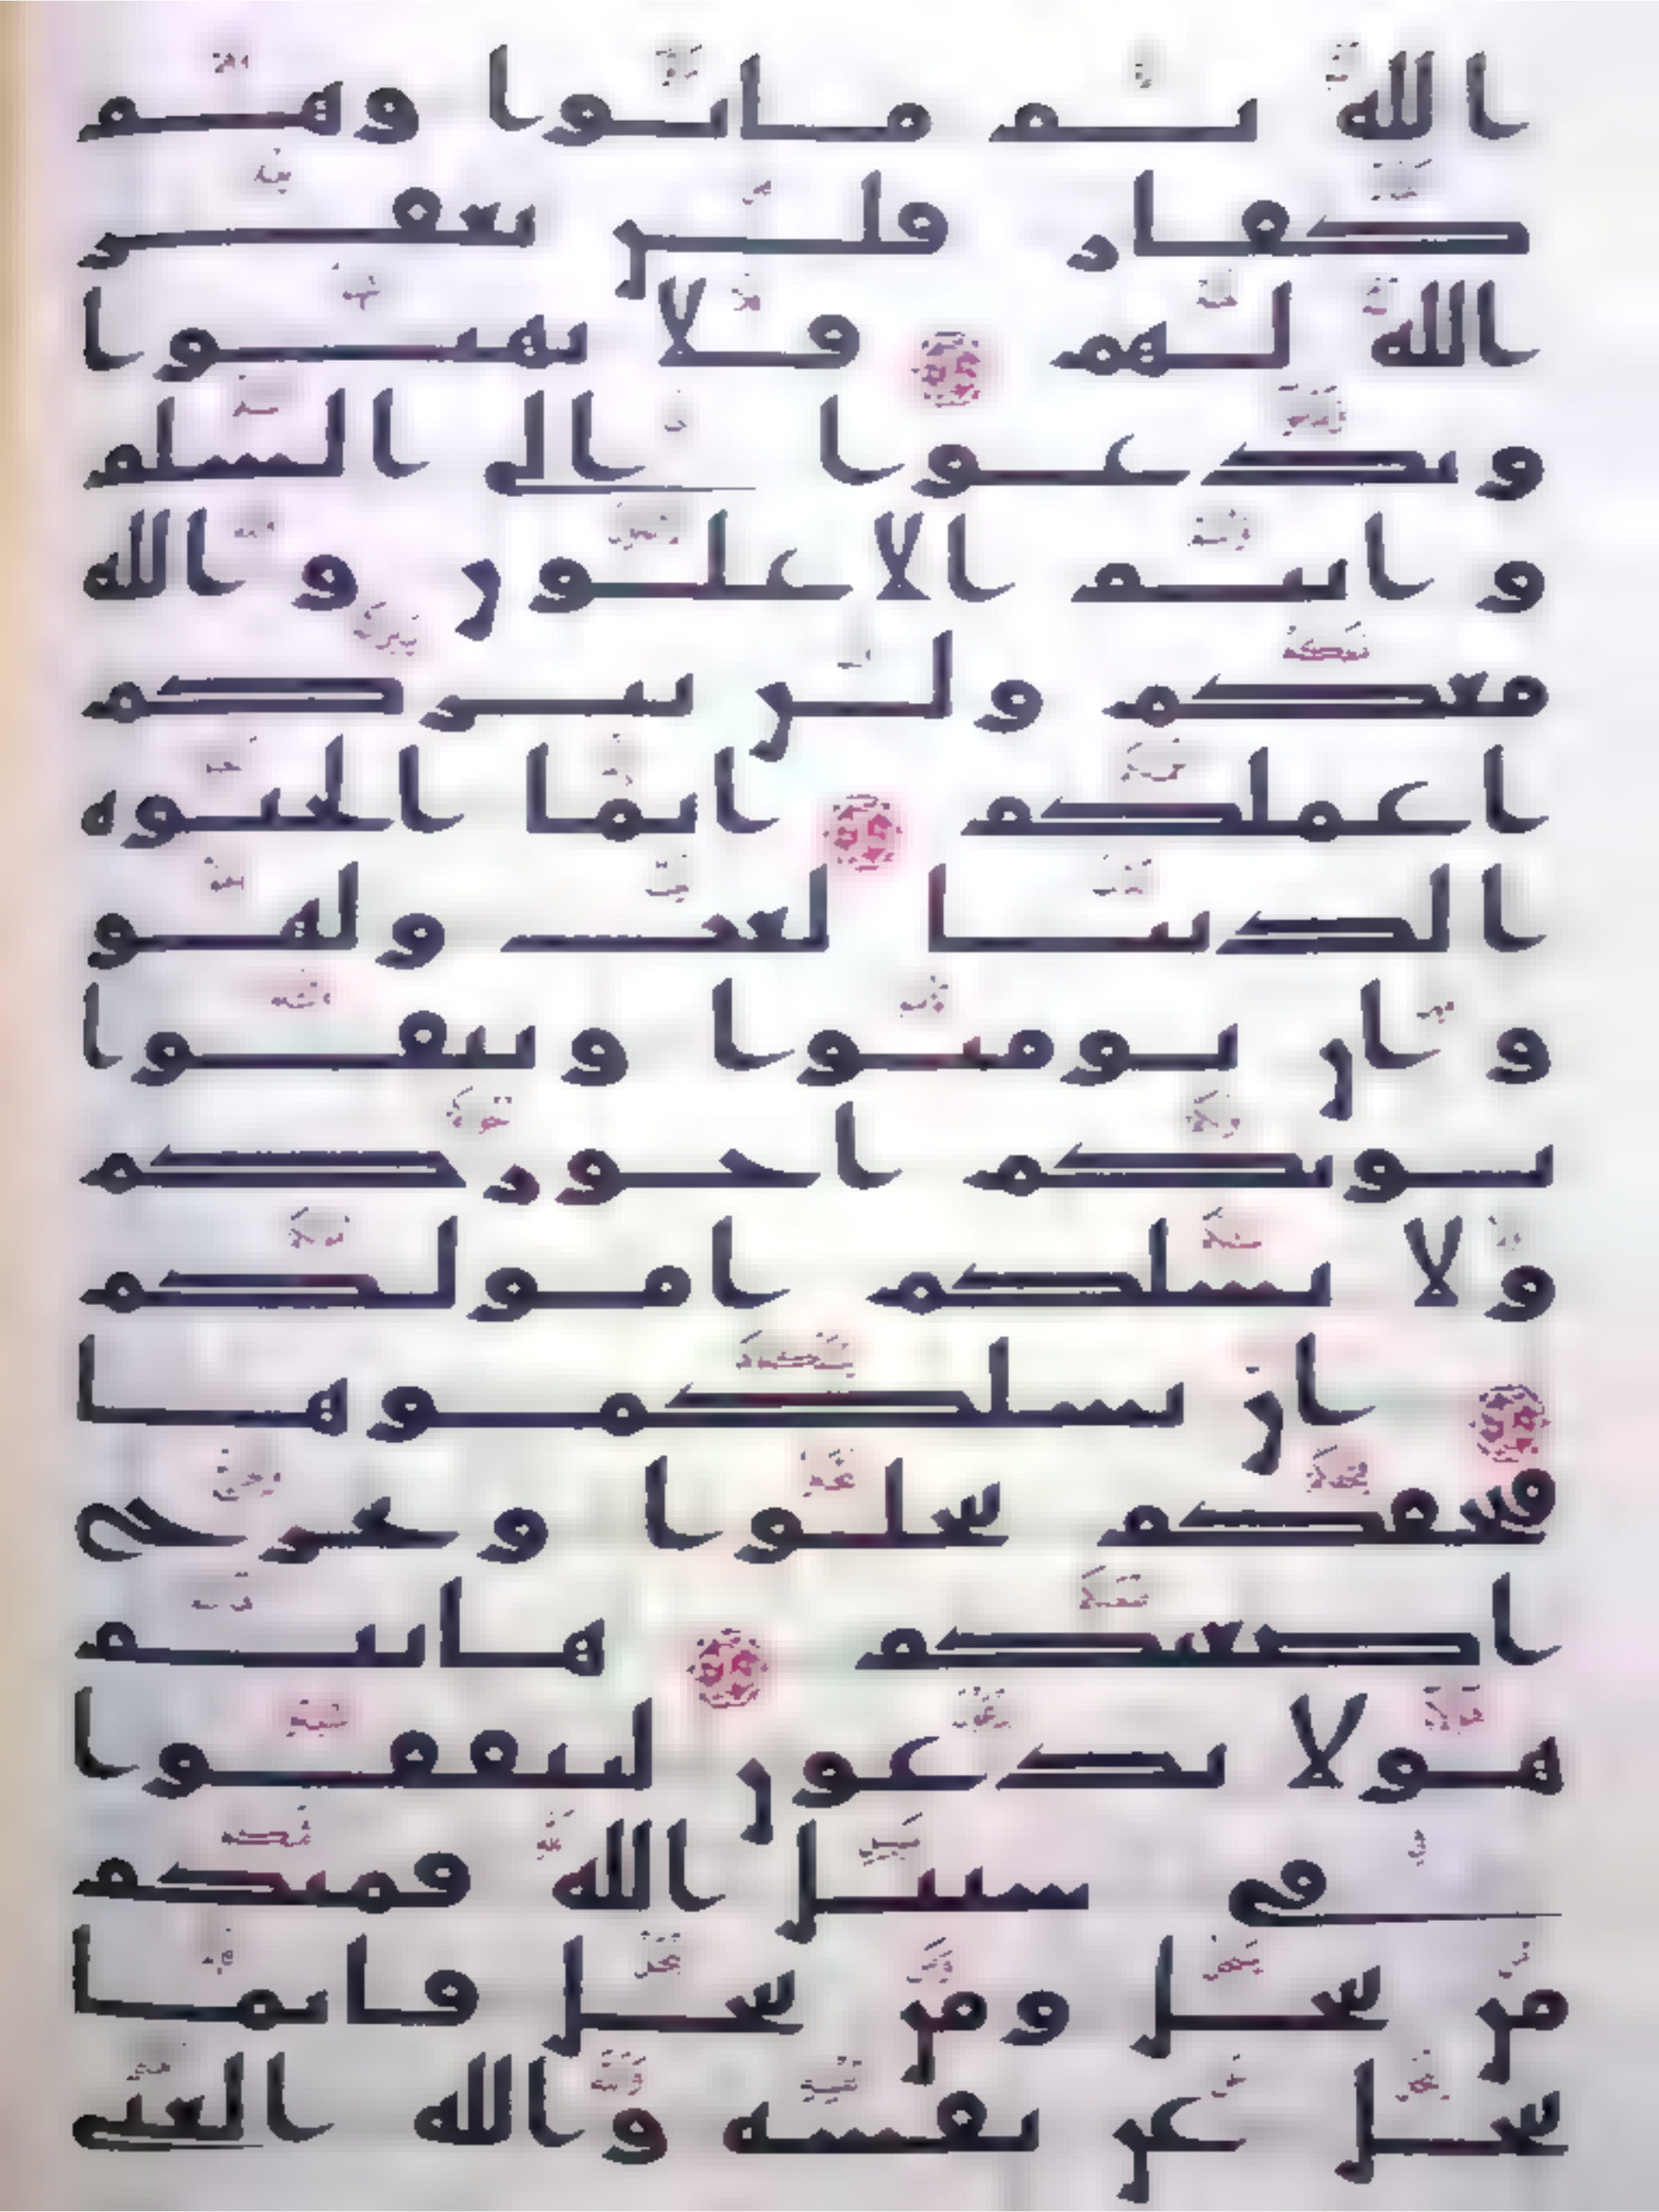 الله ثم ماتوا وهم
كفار فلن يغفر
الله لهم فلا تهنوا
وتدعوا الى السلم
وانتم الاعلون والله
معكم ولن يتركم
اعملكم انما الحيوة
الدنيا لعب ولهو
وان تومنوا وتتقوا
يوتكم اجوركم
ولا يسلكم امولكم
ان يسلكموها
فيحفكم تبخلوا ويخرج
اضغنكم هانتم
هولا تدعون لتنفقوا
في سبيل الله فمنكم
من يبخل ومن يبخل فانما
يبخل عن نفسه والله الغني